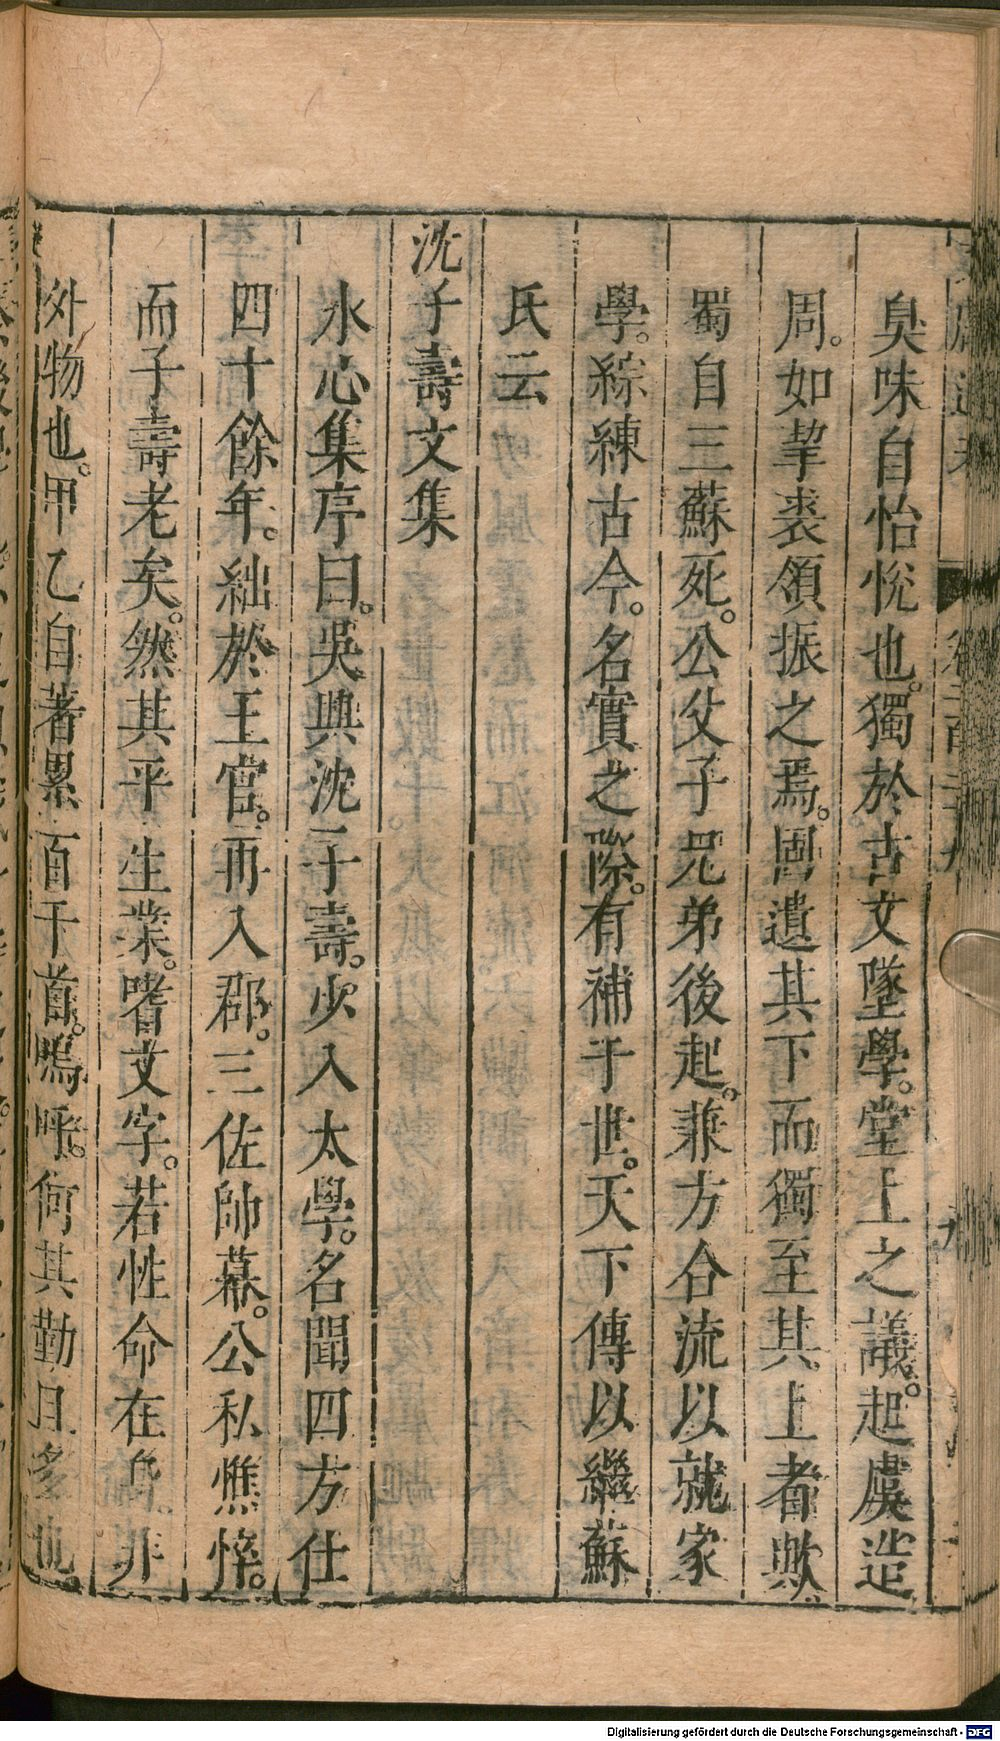 臭味自怡悅也。獨於古文墜學。堂上之議。起虞造
周。如挈裘領振之焉。固遺其下而獨至其上者歟
蜀自三蘇死。公父子兄弟後起。兼方合流以就家
學。綜練古今。名實之際。有補于世。天下傳以繼蘇
氏云
沈子壽文集
水心集序曰。吳興沈子壽。少入太學。名聞四方仕
四十餘年。絀於王官。再入郡。三佐帥幕。公私憔悴。
而子壽老矣。然其平生業。嗜文字。若性命在身。非
外物也。甲乙自著累百千首。嗚呼。何其勤且多也。
Digitalisierung gefördert durch die Deutsche Forschungsgemeinschaft - DFG